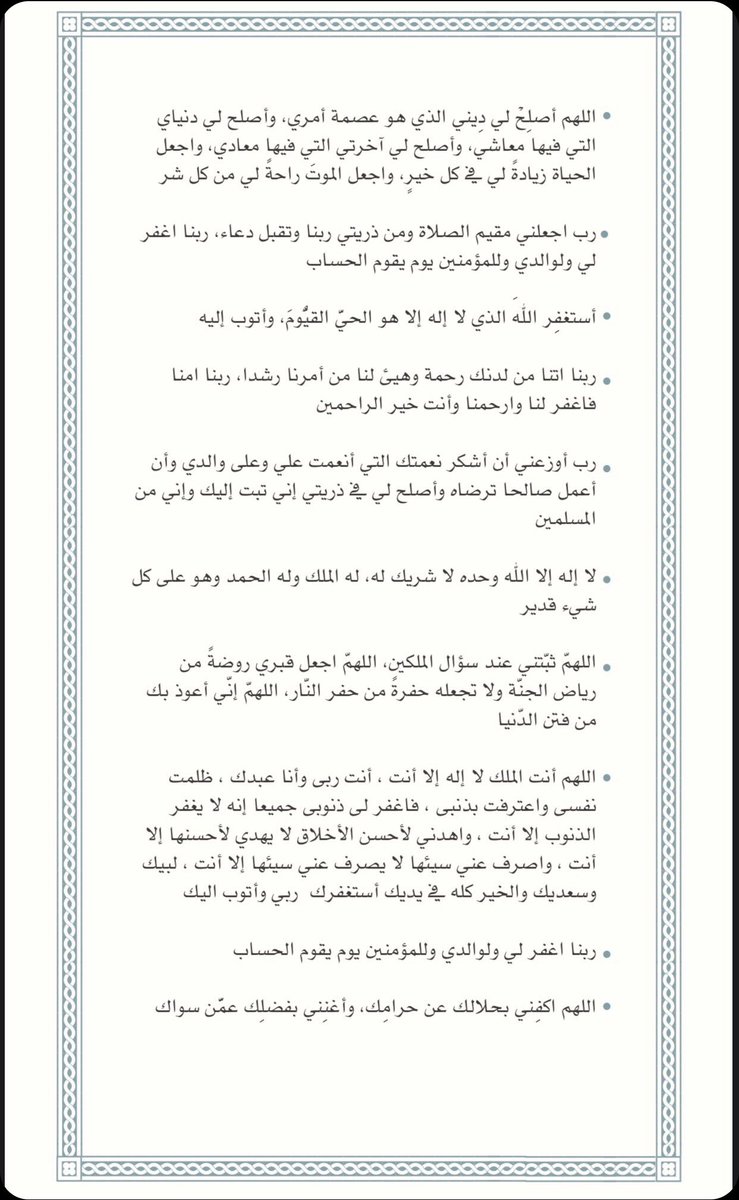 • اللهم أصلِحْ لي دِيني الذي هو عصمة أمري، وأصلح لي دنياي
التي فيها معاشي، وأصلح لي آخرتي التي فيها معادي، واجعل
الحياة زيادةً لي في كل خيرٍ، واجعل الموتَ راحةً لي من كل شر
• رب اجعلني مقيم الصلاة ومن ذريتي ربنا وتقبل دعاء، ربنا اغفر
لي ولوالدي وللمؤمنين يوم يقوم الحساب
• أستغفِر اللهَ الذي لا إله إلا هو الحيّ القيُّومَ، وأتوب إليه
• ربنا اتنا من لدنك رحمة وهيئ لنا من أمرنا رشدا، ربنا امنا
فاغفر لنا وارحمنا وأنت خير الراحمين
• رب أوزعني أن أشكر نعمتك التي أنعمت علي وعلى والدي وأن
أعمل صالحا ترضاه وأصلح لي في ذريتي إني تبت إليك وإني من
المسلمين
• لا إله إلا الله وحده لا شريك له، له الملك وله الحمد وهو على كل
شيء قدير
• اللهمّ ثبّتني عند سؤال الملكين، اللهمّ اجعل قبري روضةً من
رياض الجنّة ولا تجعله حفرةً من حفر النّار، اللهمّ إنّي أعوذ بك
من فتن الدّنيا
• اللهم أنت الملك لا إله إلا أنت ، أنت ربى وأنا عبدك ، ظلمت
نفسى واعترفت بذنبى ، فاغفر لى ذنوبى جميعا إنه لا يغفر
الذنوب إلا أنت ، واهدني لأحسن الأخلاق لا يهدي لأحسنها إلا
أنت ، واصرف عني سيئها لا يصرف عني سيئها إلا أنت ، لبيك
وسعديك والخير كله في يديك أستغفرك ربي وأتوب اليك
• ربنا اغفر لي ولوالدي وللمؤمنين يوم يقوم الحساب
• اللهم اكفِني بحلالك عن حرامِك، وأغنِني بفضلِك عمّن سواك